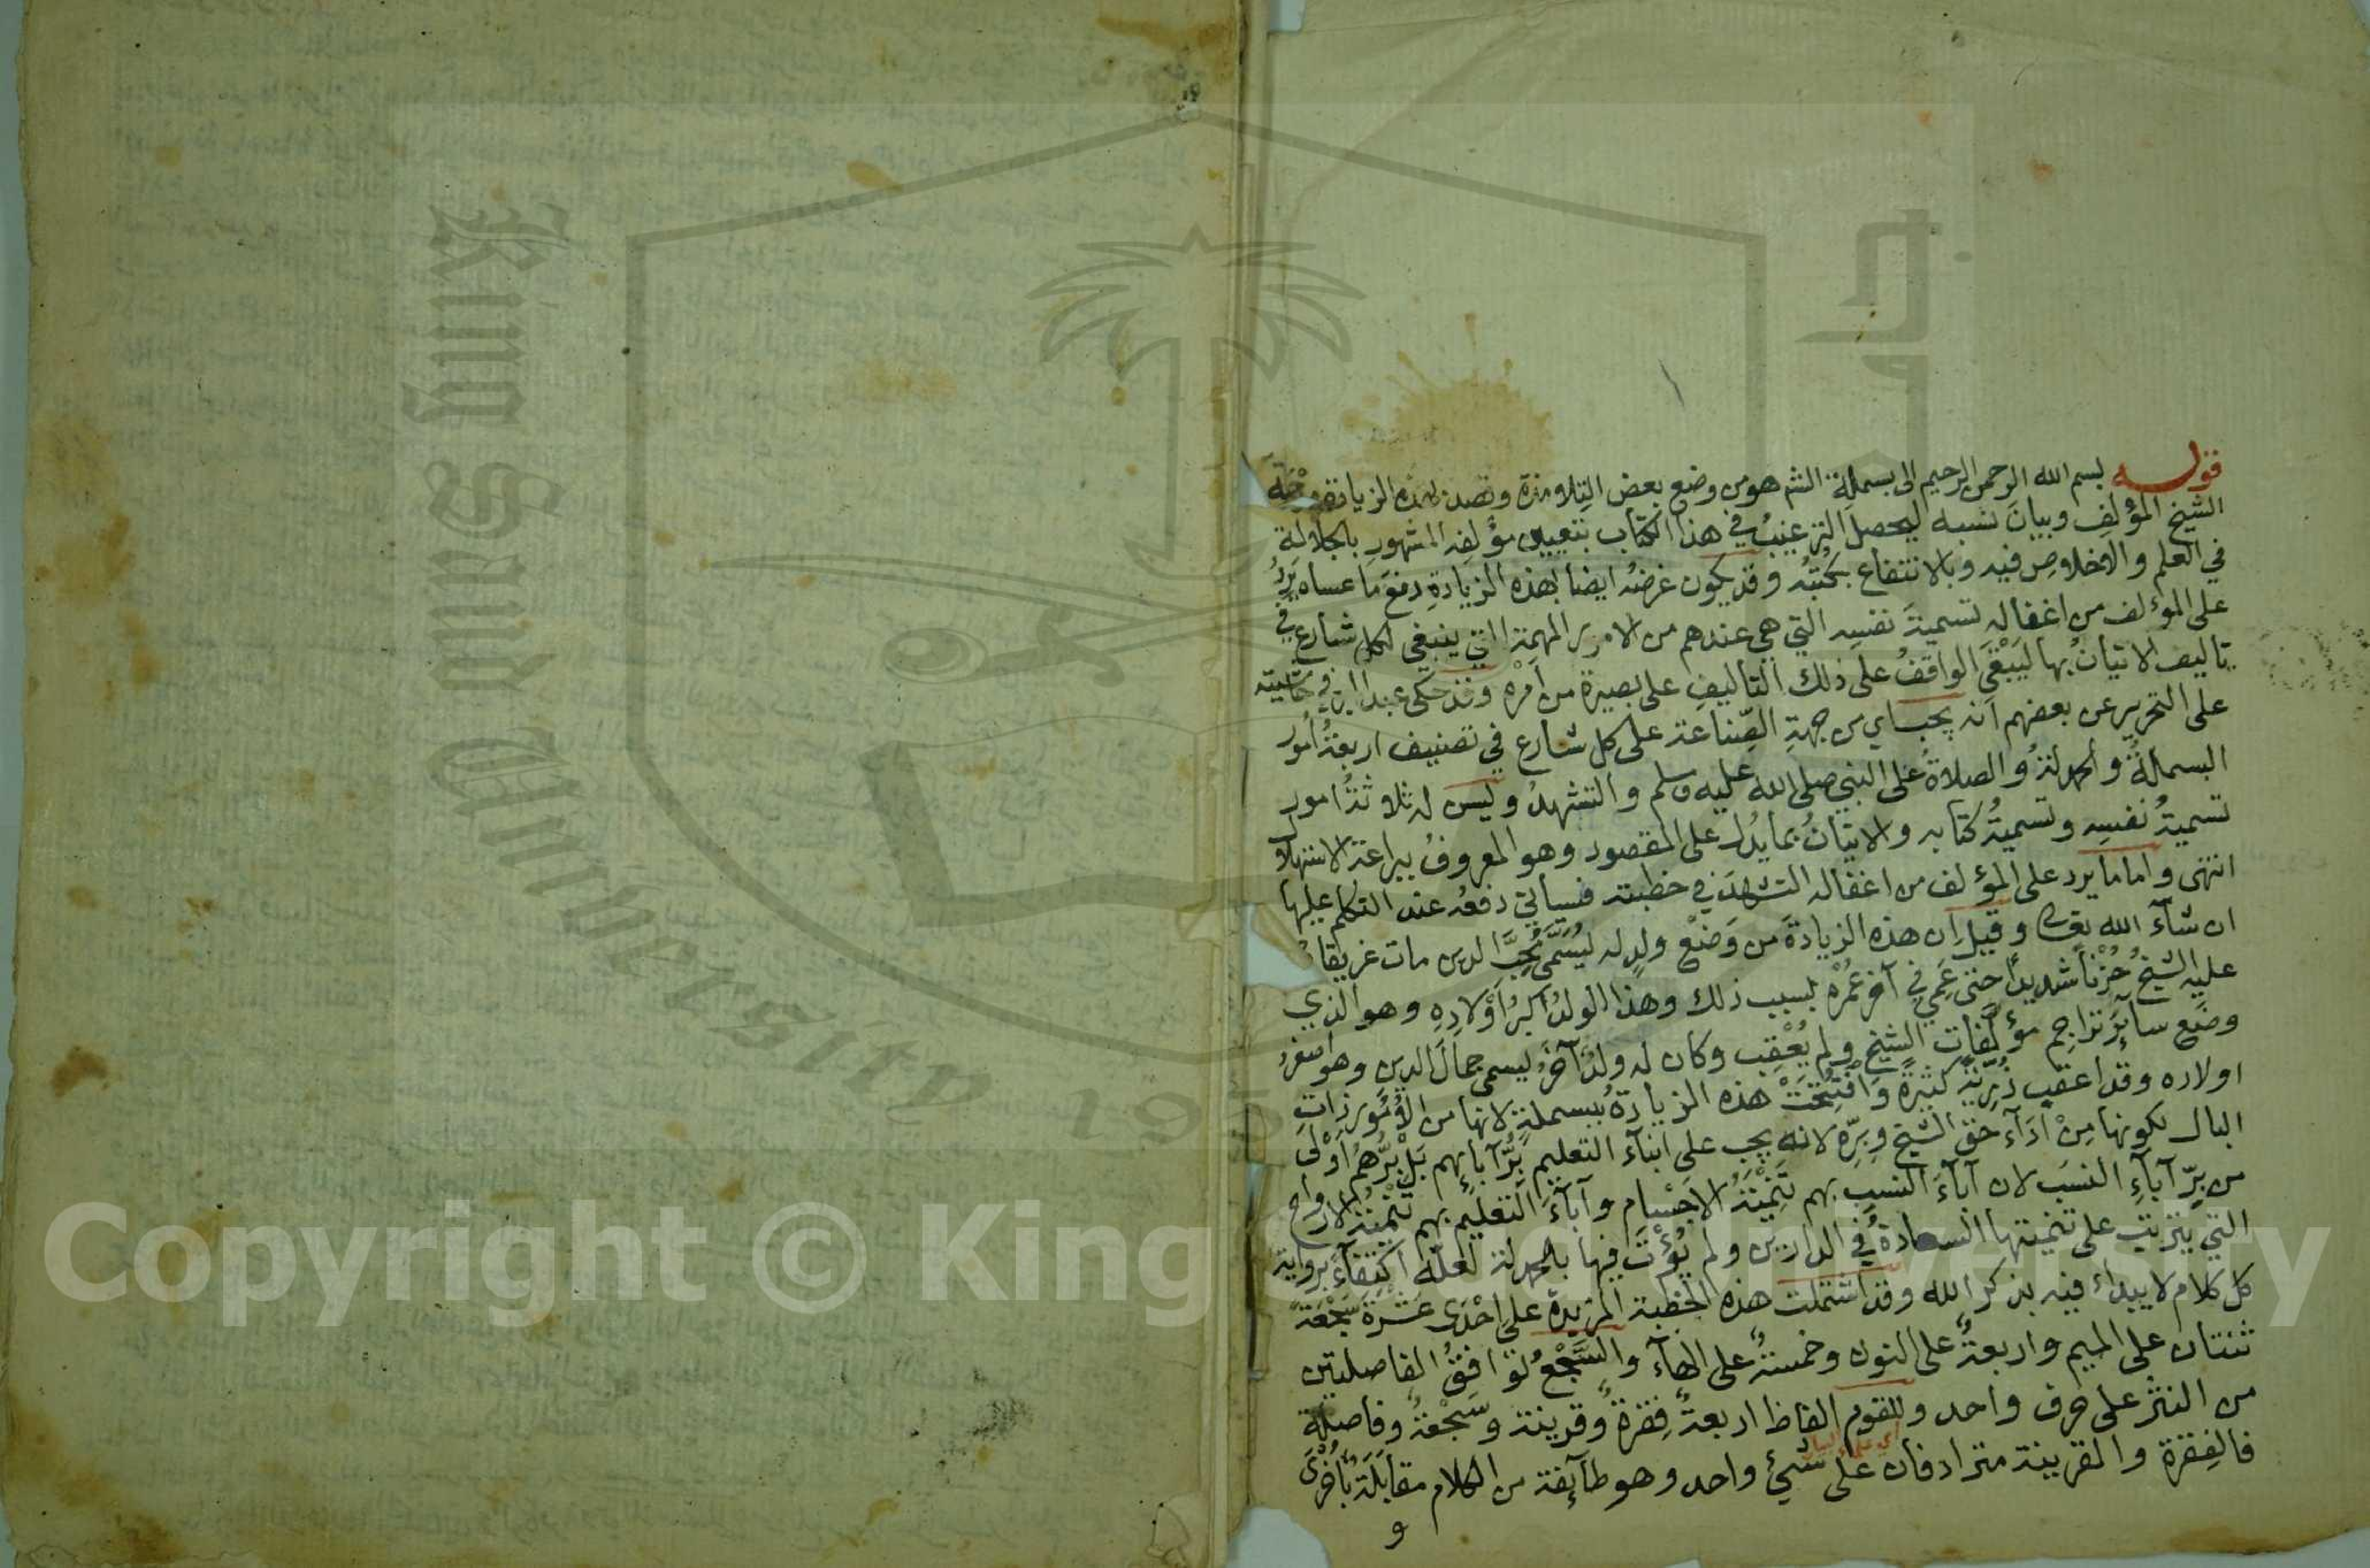 قوله بسم الله الرحمن الرحيم الى بسملة الشم هو من وضع بعض التلامذة وقصد بهذه الزيادة
الشيخ المؤلف وبيان نسبه ليحصل الترغيب في هذا الكتاب بتعيين مؤلفه المشهور بالجلالة
في العلم والاخلاص فيه وبالانتفاع بكتبه وقد يكون غرضه ايضا بهذه الزيادة دفع ما عساه يرد
على المؤلف من اغفاله تسمية نفسه التي هي عندهم من الامور المهمة التي ينبغي لكل شارع في
تاليف الاتيان بها ليبقى الواقف على ذلك التاليف على بصيرة من امره وقد حكى عبد البر في حاشيته
على التحرير عن بعضهم انه يجب اي من جهة الصناعة على كل شارع في تصنيف اربعة امور
البسملة والحمدلة والصلاة على النبي صلى الله عليه وسلم والتشهد وليس له ثلاثة امور
تسمية نفسه وتسمية كتابه والاتيان بما يدل على المقصود وهو المعروف ببراعة الاستهلال
انتهى واما ما يرد على المؤلف من اغفاله التشهد في خطبته فسياتي دفعه عند التكلم عليها
ان شآء الله تعالى وقيل ان هذه الزيادة من وضع ولد له يسمى محب الدين مات غريقا
عليه الشيخ حزنا شديدا حتى عمي في آخر عمره بسبب ذلك وهذا الولد اكبر اولاده وهو الذي
وضع سآئر تراجم مؤلفات الشيخ ولم يعقب وكان له ولد آخر يسمى جمال الدين وهو اصغر
اولاده وقد اعقب ذرية كثيرة وافتتحت هذه الزيادة ببسملة لانها من الامور ذات
البال لكونها من ادآء حق الشيخ وبره لانه يجب على ابنآء التعليم بر آبايهم بل برهم اولى
من بر آباء النسب لان آبآء النسب بهم تنمية الاجسام وآبآء التعليم بهم تنمية الارواح
التي يترتب على تنميتها السعادة في الدارين ولم يؤت فيها بالحمدلة لعله اكتفآء برواية
كل كلام لا يبداء فيه بذكر الله وقد اشتملت هذه الخطبة المزيدة على احدى عشرة سجعة
ثنتان على الميم واربعة على النون وخمسة على الهآء والسجع توافق الفاصلتين
من النثر على حرف واحد وللقوم الفاظ اربعة فقرة وقرينة وسجعة وفاصلة
فالفقرة والقرينة مترادفان على شيئ واحد وهو طآئفة من الكلام مقابلة باخرى
و
Copyright © King Saud University
King Saud University 195